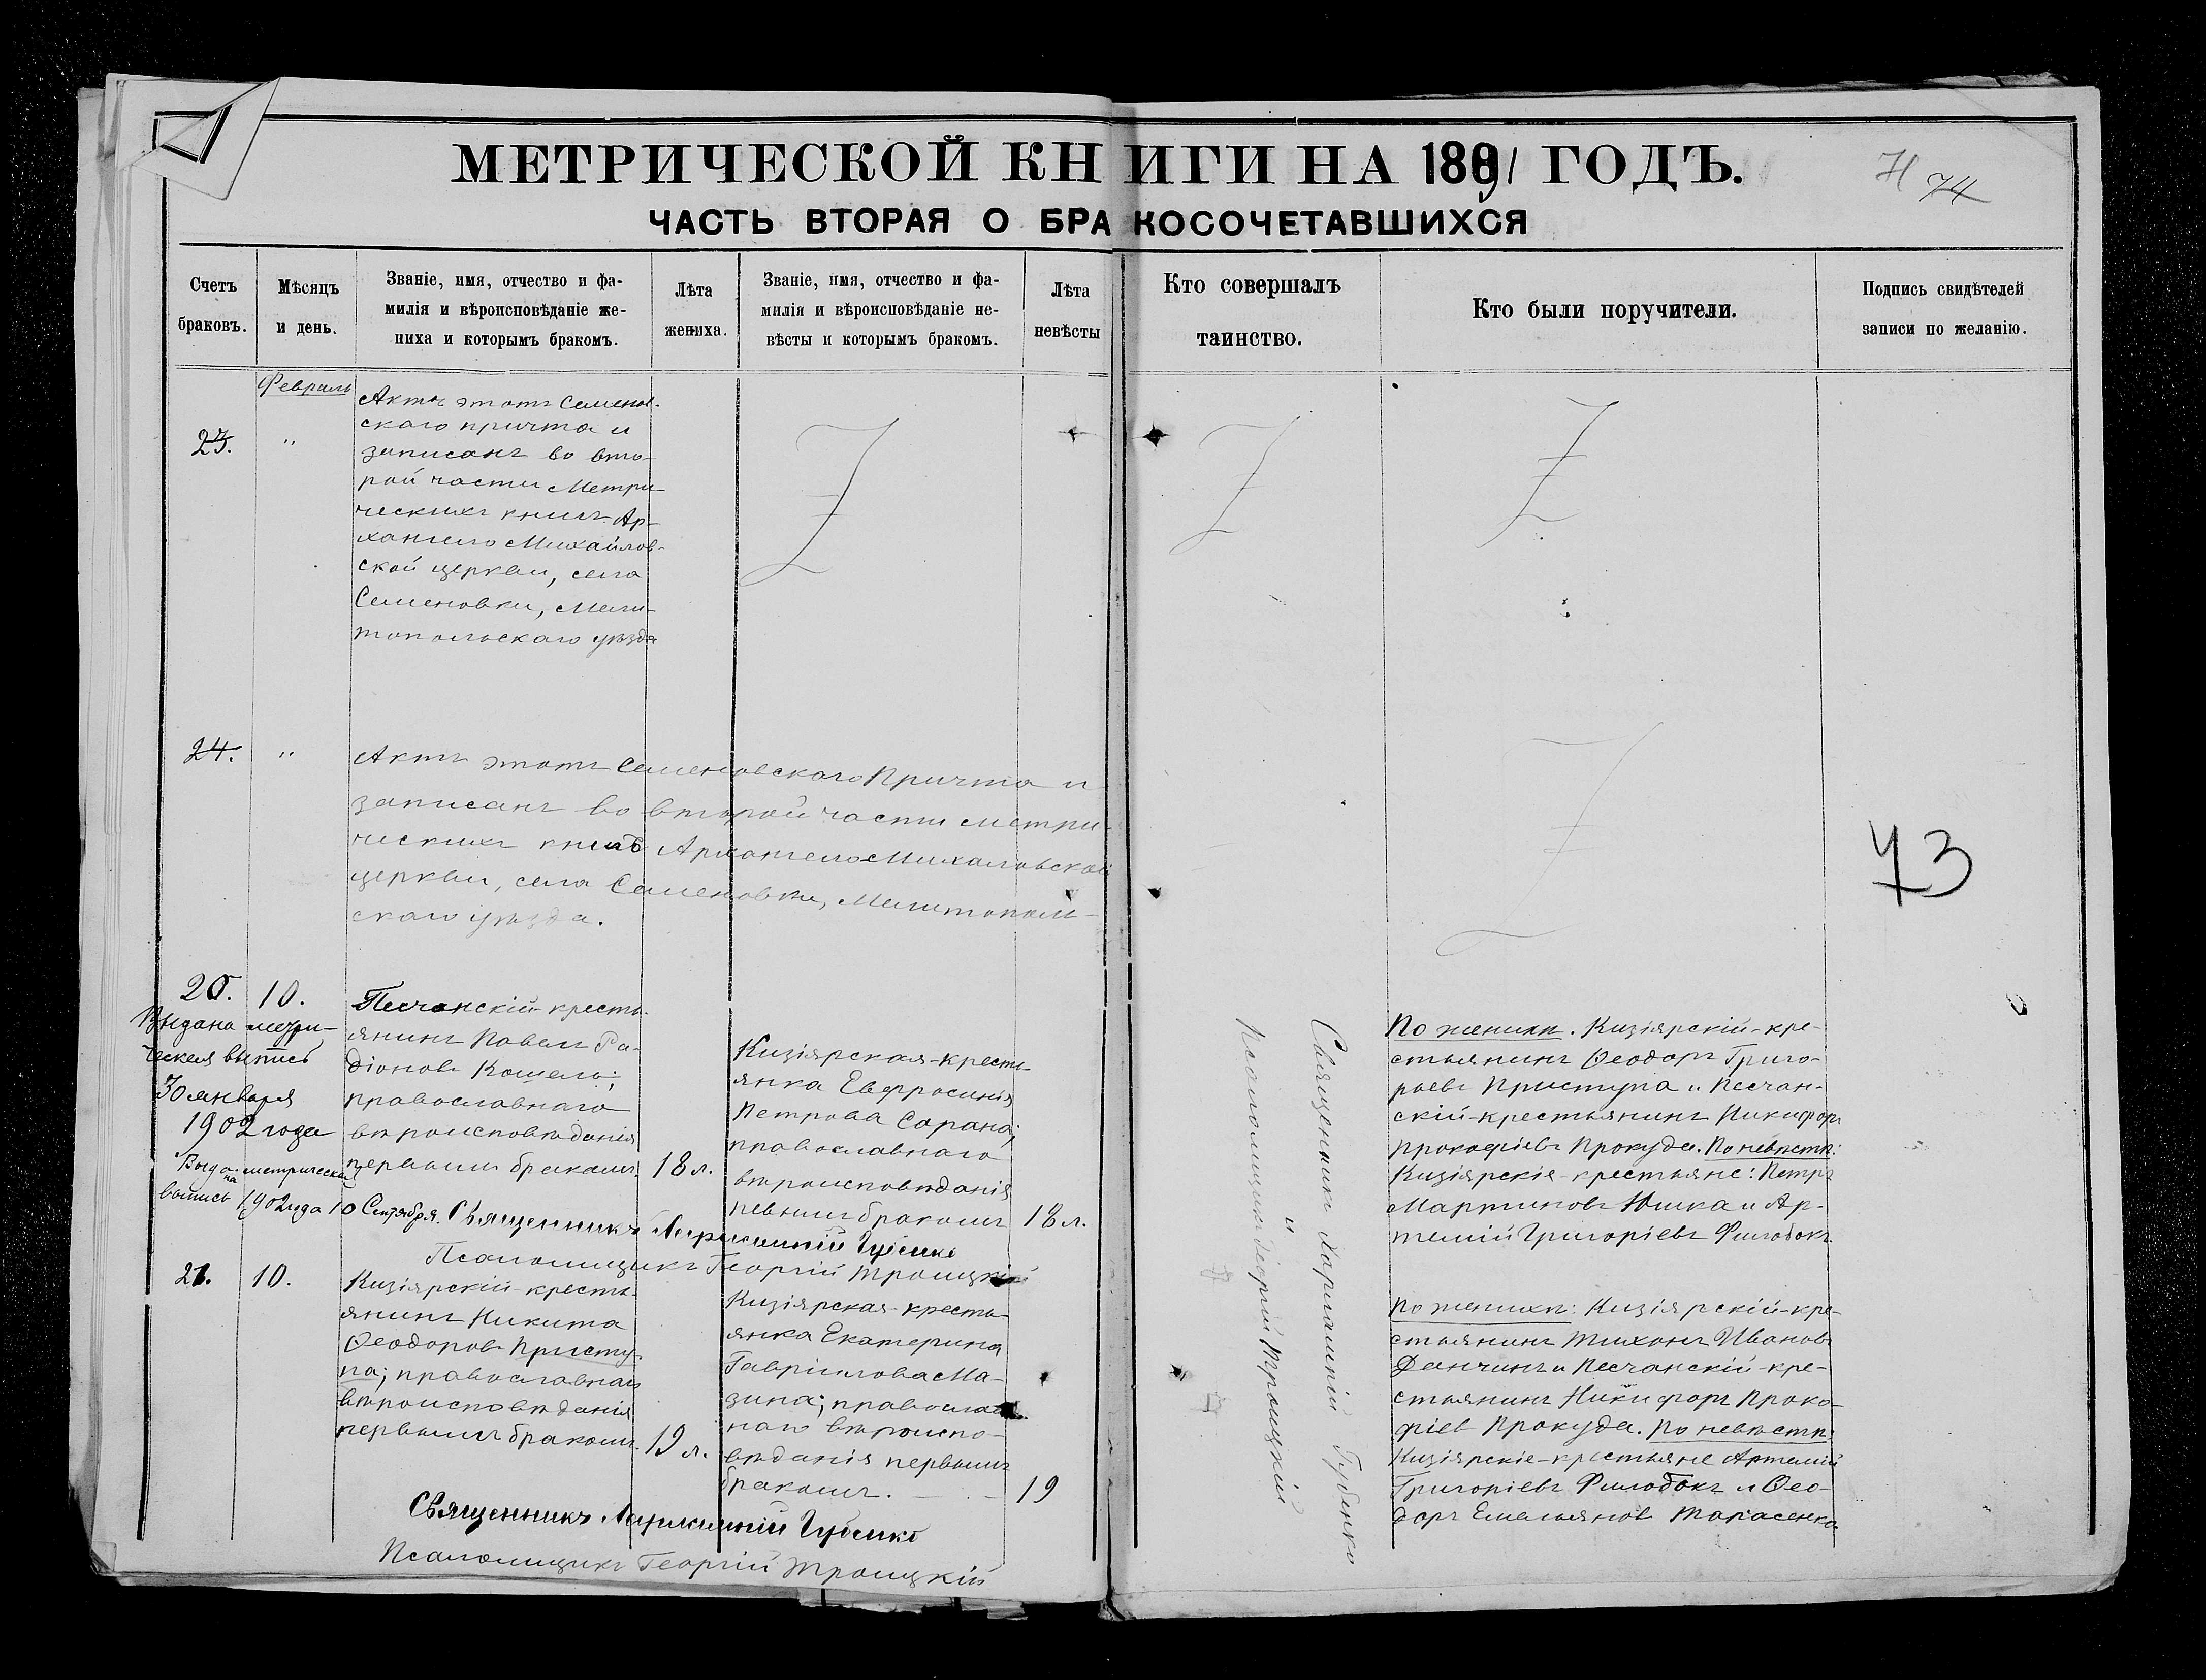 МЕТРИЧЕСКОЙ КНИГИ НА 1891 ГОДЪ.
74
ЧАСТЬ ВТОРАЯ О БРАКОСОЧЕТАВШИХСЯ
Счетъ браковъ.
Мѣсяцъ и день.
Званіе, имя, отчество и фа-
милія и вѣроисповѣданіе же-
ниха и которымъ бракомъ.
Лѣта жениха.
Званіе, имя, отчество и фа-
милія и вѣроисповѣданіе не-
вѣсты и которымъ бракомъ.
Лѣта невѣсты
Кто совершалъ таинство.
Кто были поручители.
Подпись свидѣтелей
записи по желанію.
Февраль
23.
"
Актъ этотъ Семенов-
скаго причта и
записанъ во вто-
рой части Метри-
ческихъ книгъ Ар-
хангело Михайлов-
ской церкви, села
Семеновки, Мели-
топольскаго уѣзда
24.
"
Актъ этотъ Семеновскаго Причта и
записанъ во второй части метри-
ческихъ книгъ Архангело Михаловской
церкви, села Семеновки, Мелитополь-
скаго уѣзда.
73
10.
Выдана метри-
ческая выпись
30 января
1902 года
Выдана метрическая
выпись 1902 года 10 Сентября.
Песчанскій-кресть-
янинъ Павелъ Ра-
діоновъ Кошель;
православнаго
вѣроисповѣданія
первымъ бракомъ.
18 л.
Кизіярская-кресть-
янка Евфросинія
Петрова Сарана;
православнаго
вѣроисповѣданія
певнимъ бракомъ
18 л.
Священникъ Харлампій Губенко
Псаломщикъ Георгій Троицкій
Священникъ Харлампій Губенко
и
Псаломщикъ Георгій Троицкій
По женихѣ. Кизіярскій-кре-
стьянинъ Ѳеодоръ Григо-
рьевъ Приступа и Песчан-
скій-крестьянинъ Никифоръ
Прокофіевъ Прокуда. По невѣстѣ:
Кизіярскія-крестьяне: Петръ
Мартиновъ Юшка и Ар-
темій Григоріевъ Филобокъ
21.
10.
Кизіярскій-кресть-
янинъ Никита
Ѳеодоровъ Присту-
па; православнаго
вѣроисповѣданія
первымъ бракомъ.
19 л.
Кизіярская-кресть-
янка Екатерина
Гавріилова Ма-
зина; православ-
наго вѣроиспо-
вѣданія первымъ
бракомъ.
19
По женихѣ: Кизіярскій-кре-
стьянинъ Тихонъ Ивановъ
Данчинъ и Песчанскій-кре-
стьянинъ Никифоръ Проко-
фіевъ Прокуда. По невѣстѣ:
Кизіярскіе-крестьяне Артемій
Григоріевъ Филобокъ и Ѳео-
доръ Емельяновъ Тарасенко
Священникъ Харлампій Губенко
Псаломщикъ Георгій Троицкій